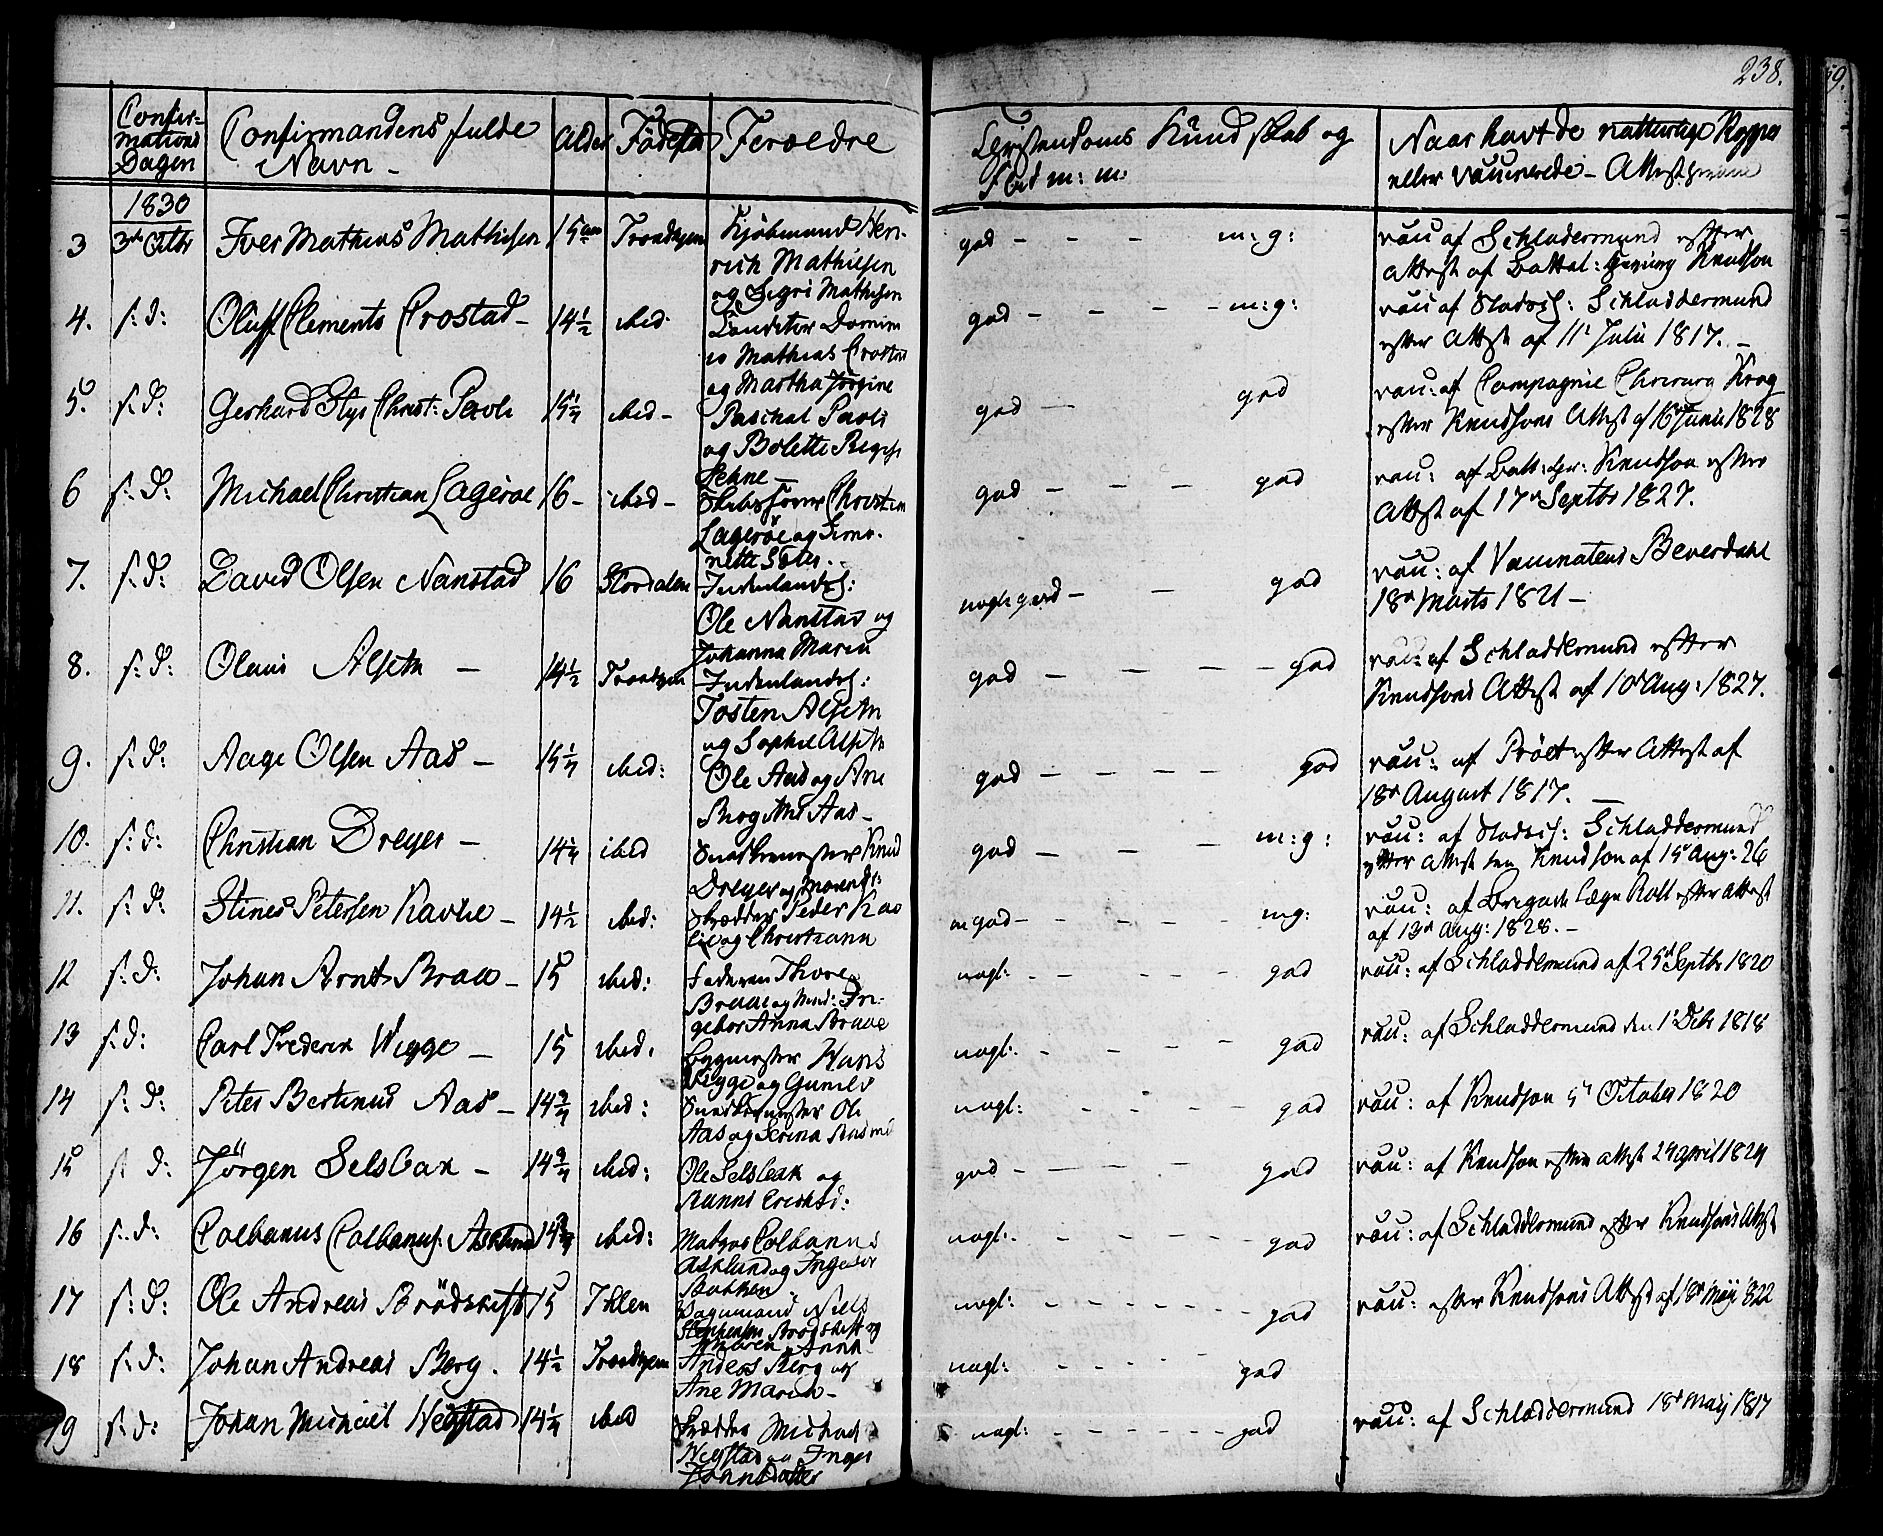 238.
Confir-
mations
Dagen
Confirmandens fulde
Navn -
Alder
Fødested
Foreldre
Christendoms Kundskab og
Flid m: m:
Naar havt de naturlige Kopper
eller vauinerede - Attest
1830
3 3de Octbr Iver Mathias Mathisen 15 Trondhjem Kjøbmand Hen-
rich Mathiesen
og Sigri Mathisen
god - - - m: g:
vau af Schladermund efter
Attest af Battal: Knudson
4. s: d: Oluff Clements Crostad - 14½ ibid: Mathias Crostad
og Martha Jørgine
god - - - - m: g:
vau af Stadsch: Schladdermund
efter Attest af 11t Julii 1817. -
5. s: d: Gerhard Stys Christ: Pavli 15¼ ibid - Paschal Pavli
og Bolette
god - god
vau: af Compagnie Chirurg Krog
efter Knudsons Attest af 16 Junii 1828
6 s: d: Michael Christian Lagerøe 16 - ibid - Christian
Lagerøe og Simo-
nette
god - - - god
vau: af Batt: Knudson efter
Attest af 17de Septbr 1827.
7. s: d: David Olsen Nanstad 16 Stordalen Indenlandsk:
Ole Nanstad og
Johanna Maria
nogl: god - - god
vau: af Vaccinateur Beverdahl
18de Marts 1821 -
8. s: d: Olaus Alseth - 14½ Trondhjem Indenlandsk:
Tosten Alseth
og Sophie Alseth
god - - - - god
vau: af Schladdermund efter
Knudsons Attest af 10de Aug: 1827.
9. s: d: Aage Olsen Aas - 15¼ ibid: Ole Aas og Ane
Aas -
god - - - - god
vau: af Pröet efter Attest af
18de August 1817. -
10. s: d: Christian Dreyer - 14¼ ibid Snedkermester Knud
Dreyer og
god - - - m: g:
vau: af Stadsch: Schladdermund
efter Attest fra Knudson af 15de Aug: 26
11. s: d: Stines Petersen Kavlie - 14½ ibid: Skrædder Peder Kav
lie og Christiana
m god - - - mg:
vau: af Brigade Læge Roll efter Attest
af 13de Aug: 1828. -
12 s: d: Johan Arnt Braae - 15 ibid: Thore
Braae og In-
gebor Anna Braae
nogl: - - - - god
vau: af Schladdermund af 25de Septbr 1820
13 s: d: Carl Frederik Wigge - 15 ibid. Bygmester Hans
Wigge og Gunild
nogl: - - - - god
vau: af Schladdermund den 1t Decbr 1818
14 s: d: Peter Bertinus Aas - 14¾ ibid: Snedkermester Ole
Aas og Serina
nogl: - - - - god
vau: af Knudson 5t October 1820
15 s: d: Jörgen Selsbak - 14¾ ibid: Ole Selsbak og
god - - - - god
vau: af Knudson efter attest 24 April 1824
16 s: d: Colbanus Colbanus: Asklund 14¾ ibid: Matros Colbanus
Asklund og Ingebor
nogl: - - - - god
vau: af Schladdermund efter Knudsons Attest
17 s: d: Ole Andreas Brödskift 15 Ihlen Niels
Stephensen Brödskift og
Maren Anna
nogl: - - - - god
vau: efter Knudsons Attest af 18de Maji 1822
18 s: d: Johan Andreas Berg. 14½ Trondhjem Anders Berg og
Ane Maria -
nogl: - - - - god
19 s: d: Johan Michael Wefstad 14¼ ibid Skrædder Michael
Wefstad og Inger
Johnsdatter
nogl: - - - - god
vau: af Schladdermund 18de Maij 1817